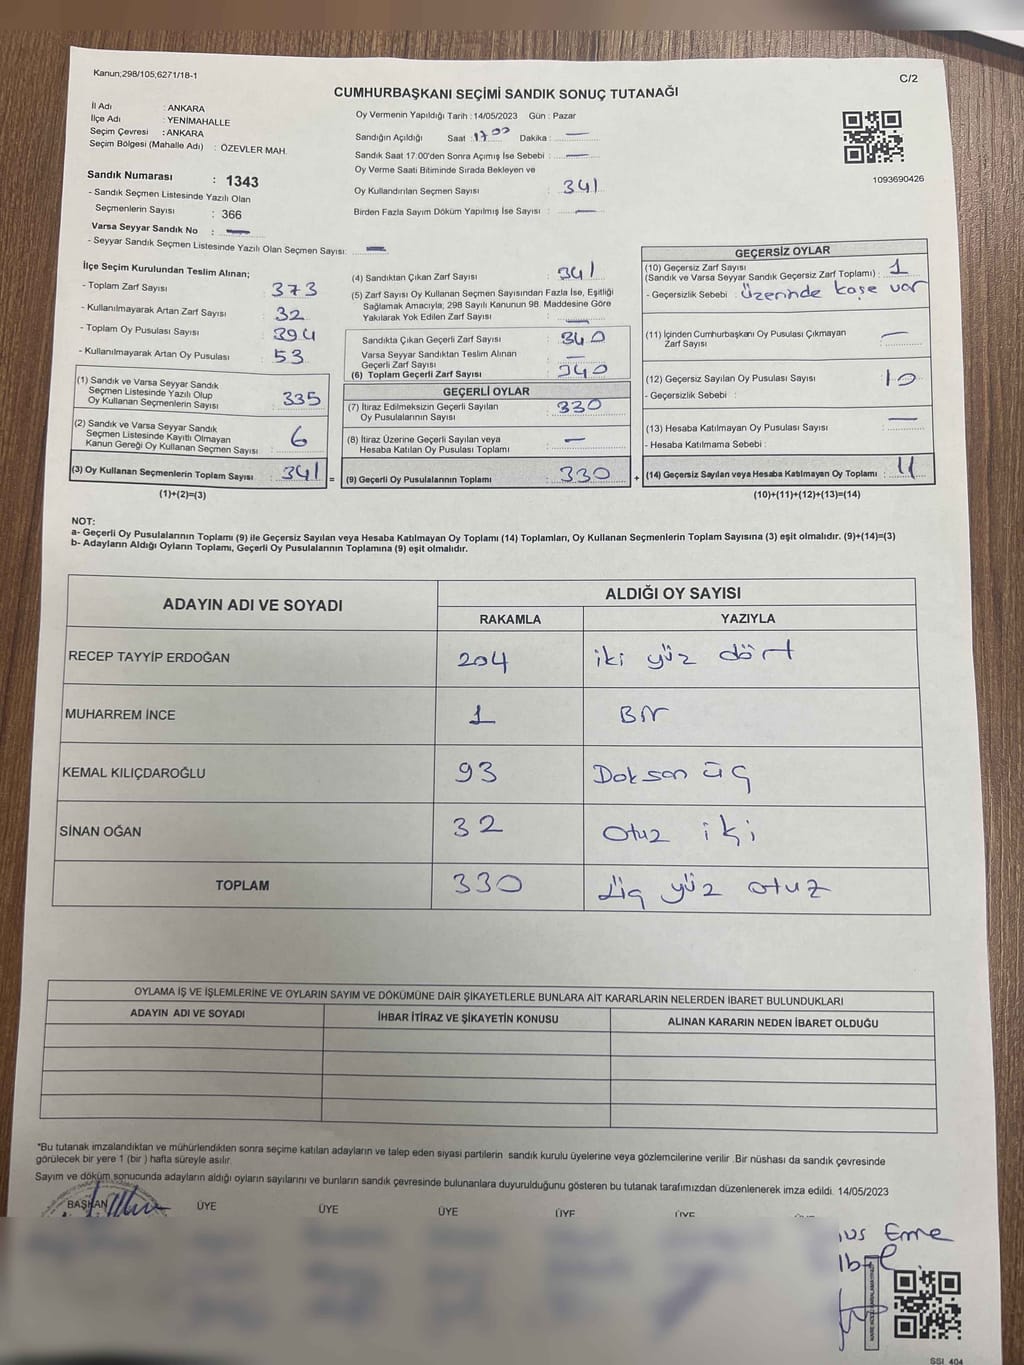 Kanun;298/105,6271/18-1
C/2
CUMHURBAŞKANI SEÇİMİ SANDIK SONUÇ TUTANAĞI
İl Adı : ANKARA
İlçe Adı : YENİMAHALLE
Seçim Çevresi : ANKARA
Seçim Bölgesi (Mahalle Adı) : ÖZEVLER MAH.
Sandık Numarası : 1343
- Sandık Seçmen Listesinde Yazılı Olan
Seçmenlerin Sayısı : 366
Varsa Seyyar Sandık No : —
- Seyyar Sandık Seçmen Listesinde Yazılı Olan Seçmen Sayısı: —
Oy Vermenin Yapıldığı Tarih : 14/05/2023 Gün : Pazar
Sandığın Açıldığı Saat : 17 00 Dakika : —
Sandık Saat 17:00'den Sonra Açımış İse Sebebi : —
Oy Verme Saati Bitiminde Sırada Bekleyen ve
Oy Kullandırılan Seçmen Sayısı : 341
Birden Fazla Sayım Döküm Yapılmış İse Sayısı : —
1093690426
İlçe Seçim Kurulundan Teslim Alınan;
- Toplam Zarf Sayısı : 373
- Kullanılmayarak Artan Zarf Sayısı : 32
- Toplam Oy Pusulası Sayısı : 394
- Kullanılmayarak Artan Oy Pusulası : 53
(1) Sandık ve Varsa Seyyar Sandık
Seçmen Listesinde Yazılı Olup
Oy Kullanan Seçmenlerin Sayısı : 335
(2) Sandık ve Varsa Seyyar Sandık
Seçmen Listesinde Kayıtlı Olmayan
Kanun Gereği Oy Kullanan Seçmen Sayısı : 6
(3) Oy Kullanan Seçmenlerin Toplam Sayısı : 341 =
(1)+(2)=(3)
(4) Sandıktan Çıkan Zarf Sayısı : 341
(5) Zarf Sayısı Oy Kullanan Seçmen Sayısından Fazla İse, Eşitliği
Sağlamak Amacıyla, 298 Sayılı Kanunun 98. Maddesine Göre
Yakılarak Yok Edilen Zarf Sayısı : —
Sandıkta Çıkan Geçerli Zarf Sayısı : 340
Varsa Seyyar Sandıktan Teslim Alınan
Geçerli Zarf Sayısı : —
(6) Toplam Geçerli Zarf Sayısı : 340
GEÇERLİ OYLAR
(7) İtiraz Edilmeksizin Geçerli Sayılan
Oy Pusulalarının Sayısı : 330
(8) İtiraz Üzerine Geçerli Sayılan veya
Hesaba Katılan Oy Pusulası Toplamı : —
(9) Geçerli Oy Pusulalarının Toplamı : 330 +
GEÇERSİZ OYLAR
(10) Geçersiz Zarf Sayısı
(Sandık ve Varsa Seyyar Sandık Geçersiz Zarf Toplamı) : 1
- Geçersizlik Sebebi : üzerinde kaşe var
(11) İçinden Cumhurbaşkanı Oy Pusulası Çıkmayan
Zarf Sayısı : —
(12) Geçersiz Sayılan Oy Pusulası Sayısı : 10
- Geçersizlik Sebebi :
(13) Hesaba Katılmayan Oy Pusulası Sayısı : —
- Hesaba Katılmama Sebebi :
(14) Geçersiz Sayılan veya Hesaba Katılmayan Oy Toplamı : 11
(10)+(11)+(12)+(13)=(14)
NOT:
a- Geçerli Oy Pusulalarının Toplamı (9) ile Geçersiz Sayılan veya Hesaba Katılmayan Oy Toplamı (14) Toplamları, Oy Kullanan Seçmenlerin Toplam Sayısına (3) eşit olmalıdır. (9)+(14)=(3)
b- Adayların Aldığı Oyların Toplamı, Geçerli Oy Pusulalarının Toplamına (9) eşit olmalıdır.
ADAYIN ADI VE SOYADI ALDIĞI OY SAYISI
RAKAMLA YAZIYLA
RECEP TAYYİP ERDOĞAN 204 iki yüz dört
MUHARREM İNCE 1 Bir
KEMAL KILIÇDAROĞLU 93 Doksan üç
SİNAN OĞAN 32 Otuz iki
TOPLAM 330 üç yüz otuz
OYLAMA İŞ VE İŞLEMLERİNE VE OYLARIN SAYIM VE DÖKÜMÜNE DAİR ŞİKAYETLERLE BUNLARA AİT KARARLARIN NELERDEN İBARET BULUNDUKLARI
ADAYIN ADI VE SOYADI İHBAR İTİRAZ VE ŞİKAYETİN KONUSU ALINAN KARARIN NEDEN İBARET OLDUĞU
*Bu tutanak imzalandıktan ve mühürlendikten sonra seçime katılan adayların ve talep eden siyasi partilerin sandık kurulu üyelerine veya gözlemcilerine verilir .Bir nüshası da sandık çevresinde
görülecek bir yere 1 (bir ) hafta süreyle asılır.
Sayım ve döküm sonucunda adayların aldığı oyların sayılarını ve bunların sandık çevresinde bulunanlara duyurulduğunu gösteren bu tutanak tarafımızdan düzenlenerek imza edildi. 14/05/2023
BAŞKAN ÜYE ÜYE ÜYE ÜYE ÜYE
Emre
SSI 404